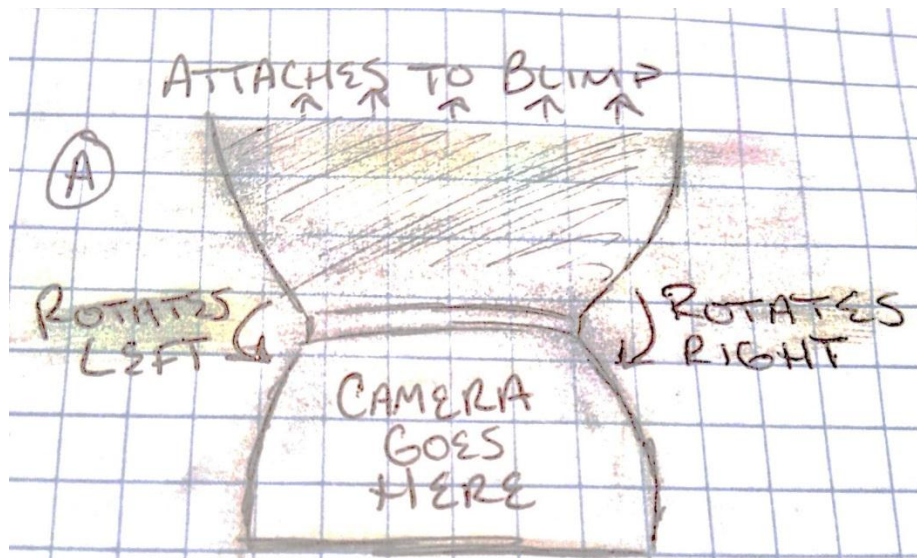 ATTACHES TO BLIMP
A
ROTATES
LEFT
ROTATES
RIGHT
CAMERA
GOES
HERE